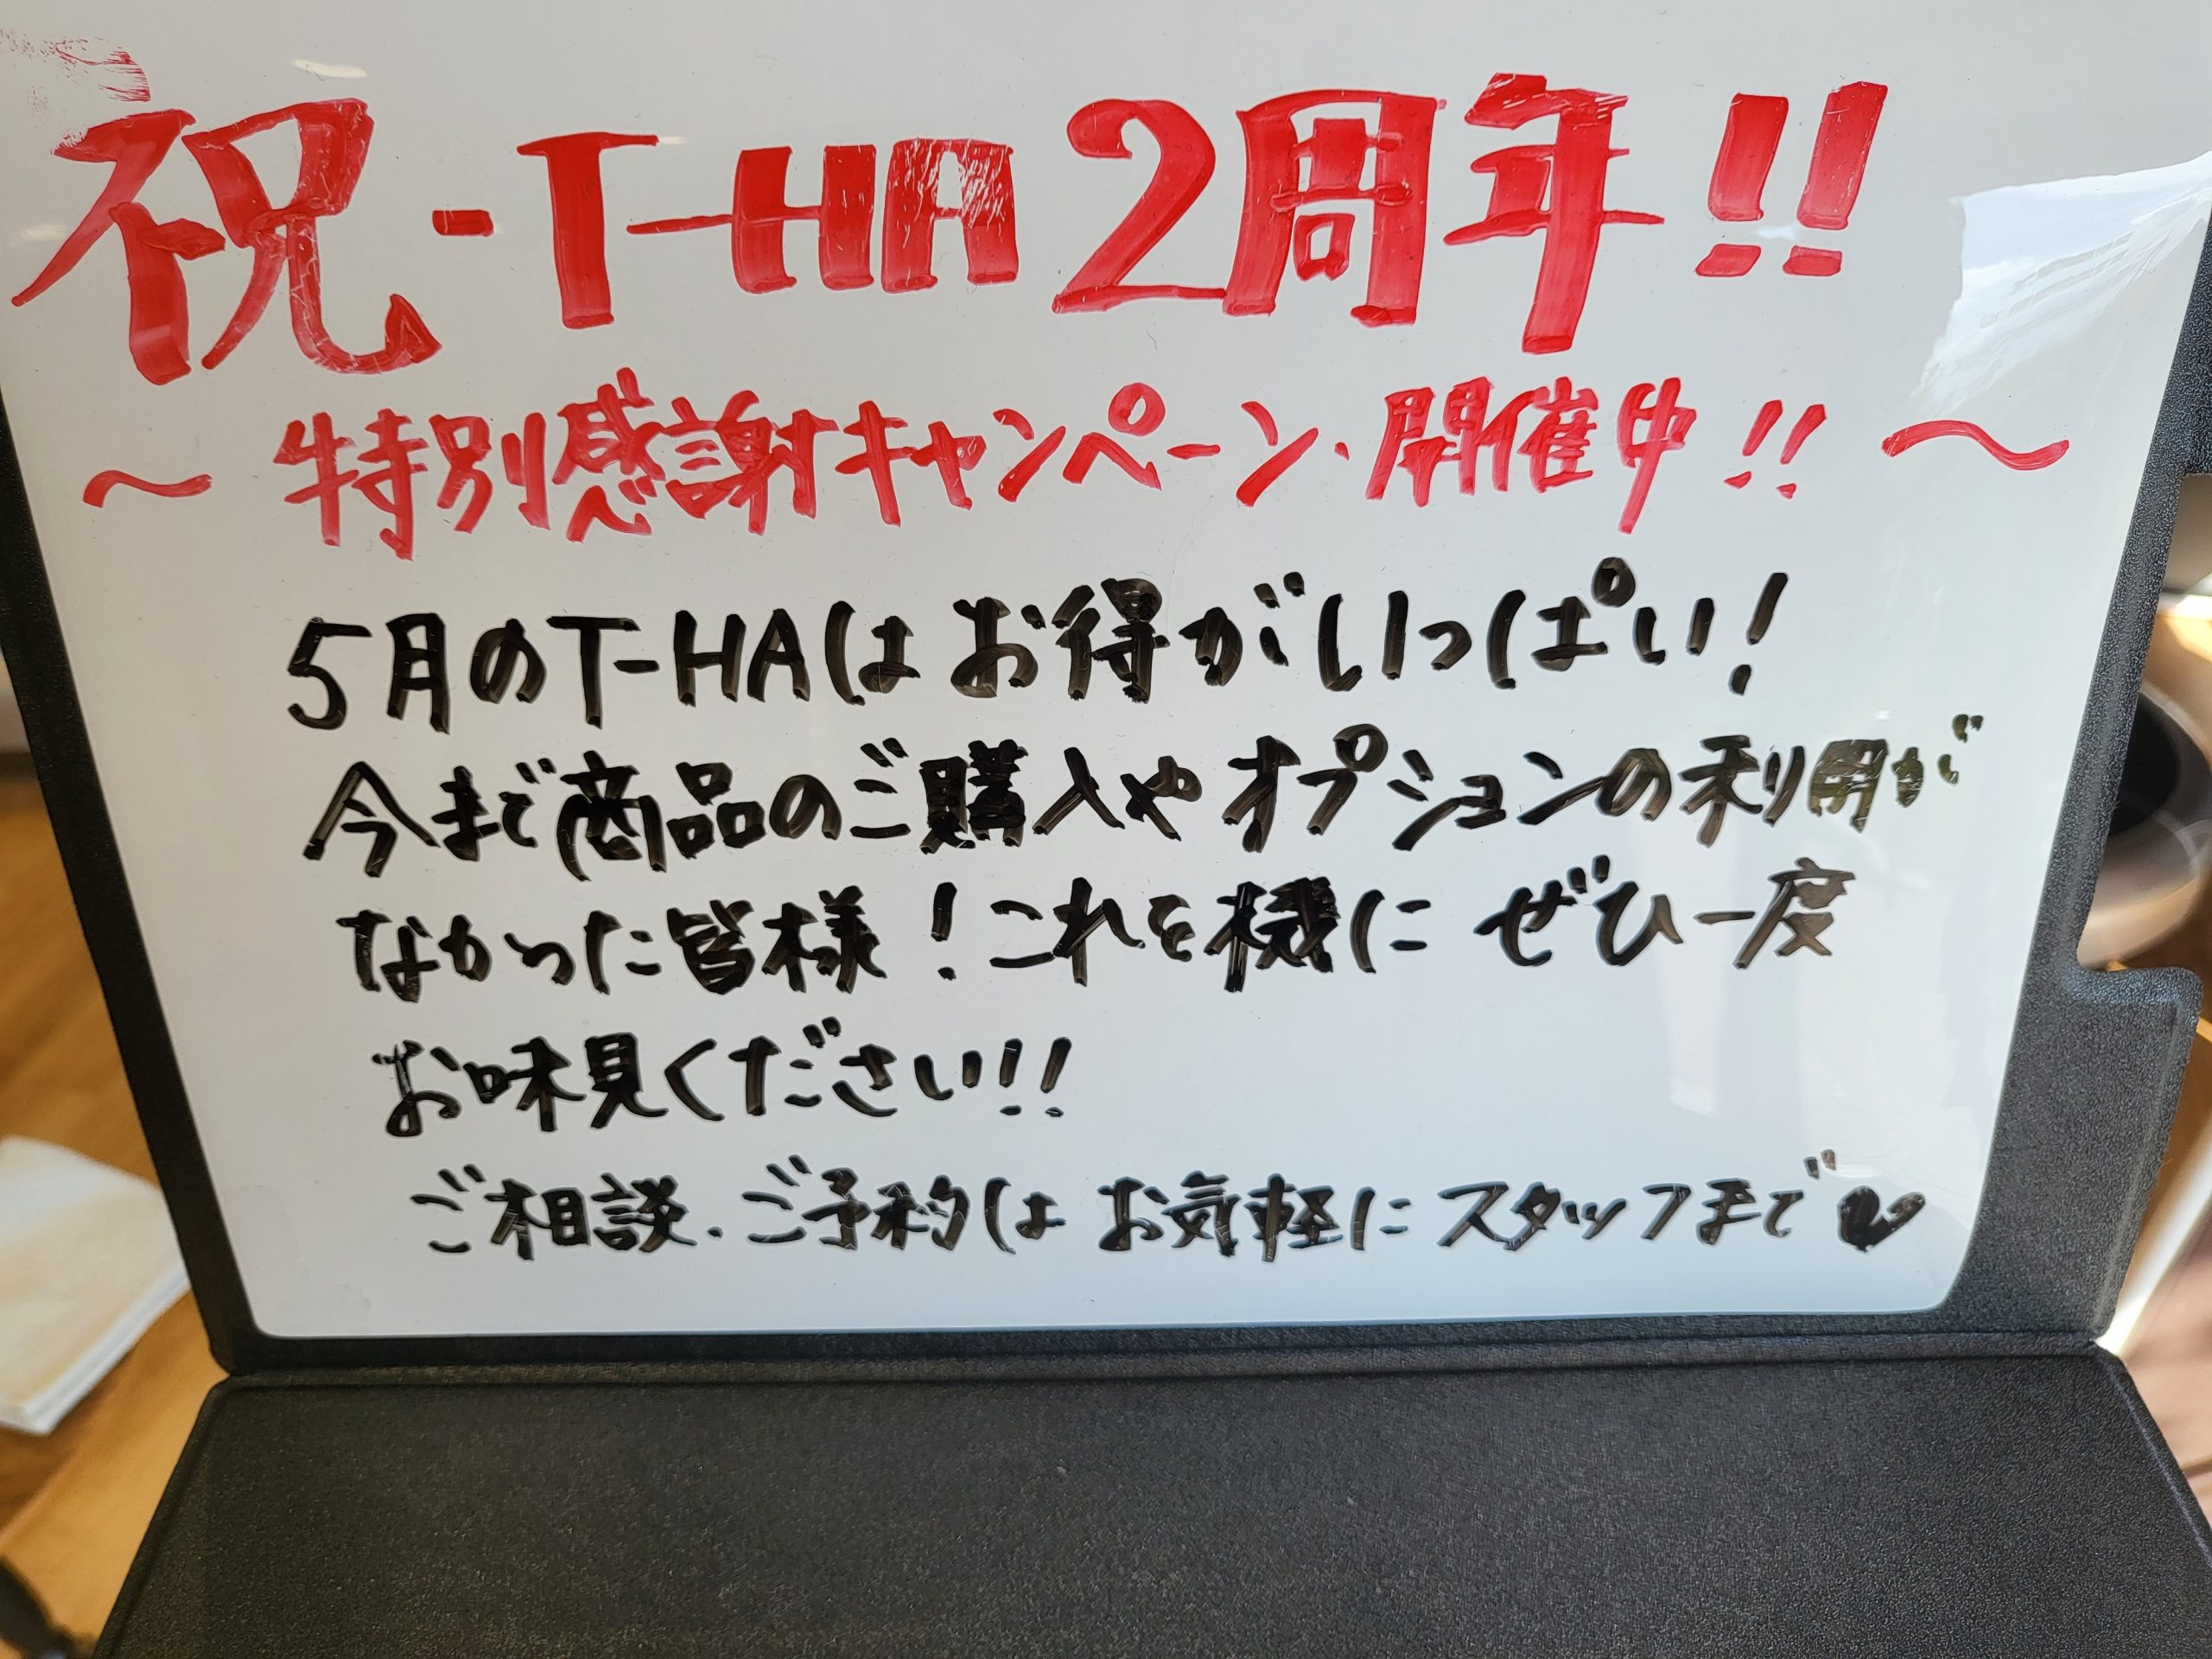 祝-T-HA 2周年!!
～特別感謝キャンペーン・開催中!!～
5月のT-HAはお得がいっぱい!
今まで商品のご購入やオプションの利用が
なかった皆様!これを機にぜひ一度
お味見ください!!
ご相談・ご予約はお気軽にスタッフまで♥